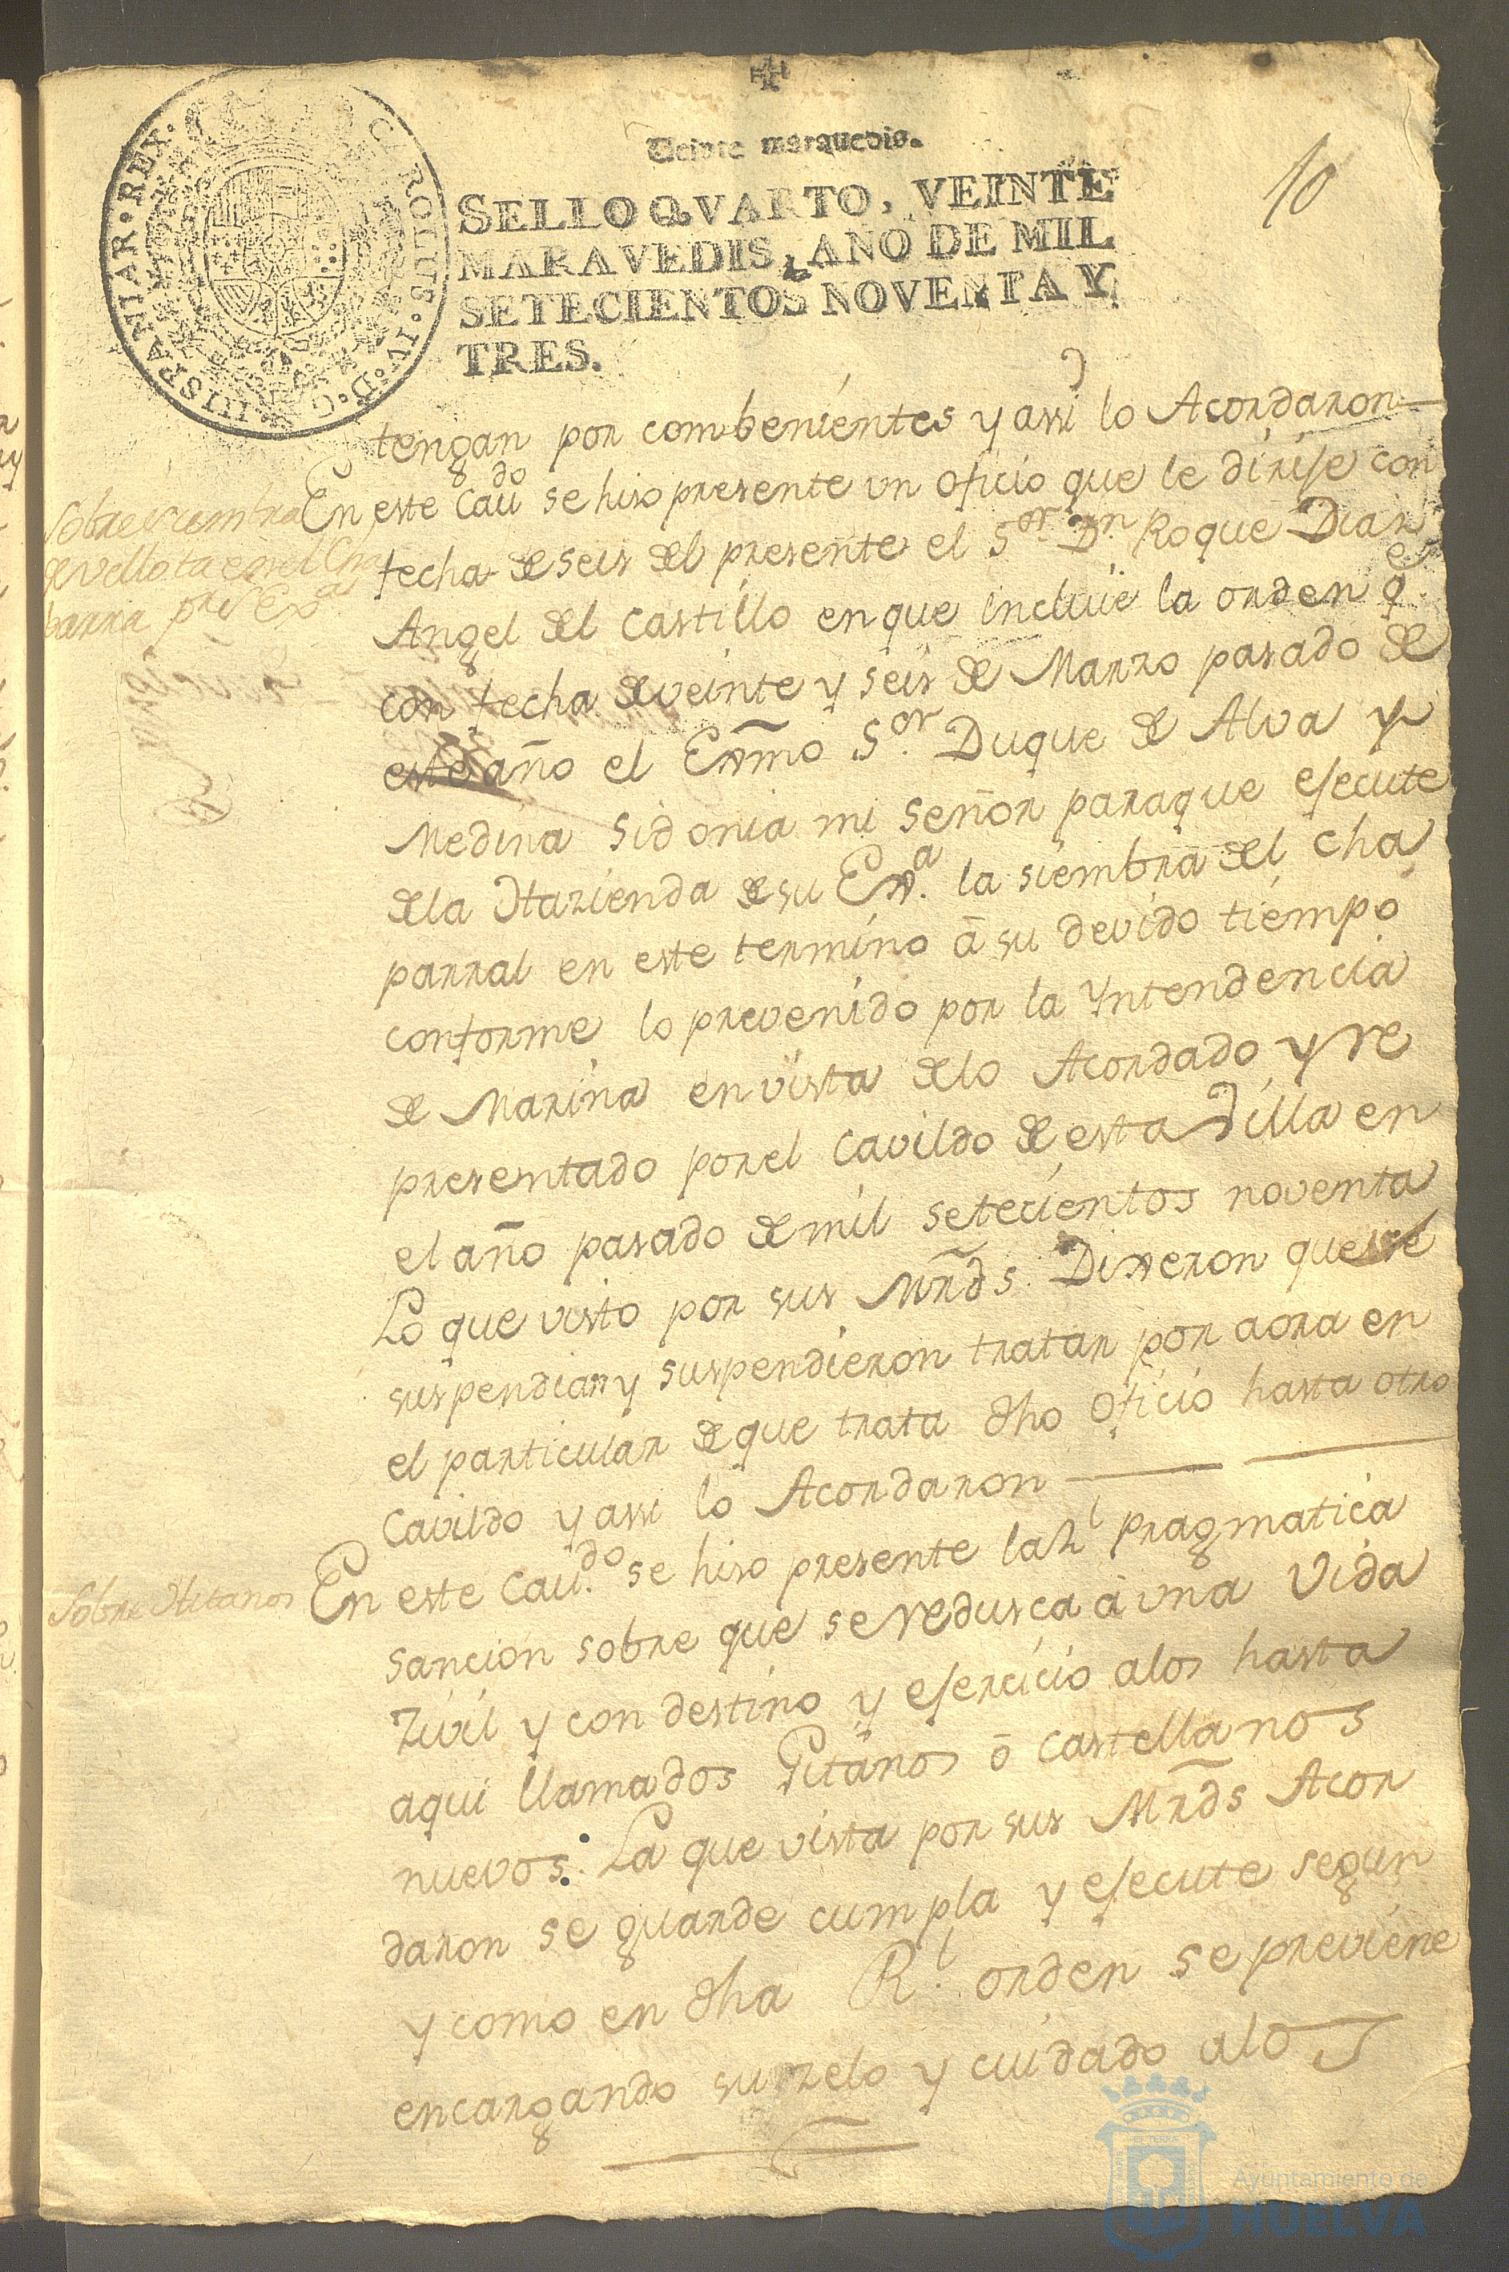 Veinte marauedis.
SELLO QVARTO, VEINTE
MARAVEDIS, AÑO DE MIL
SETECIENTOS NOVENTA Y
TRES.
CAROLUS·IV·D·G·HISPANIAR·REX·
10
tengan por combenientes y assi lo Acordaron
En este Cau.do se hiso presente un oficio que le dirije con
fecha de seis del presente el S.or D.n Roque Dias
Angel del Castillo en que incluie la orden q.e
con fecha de veinte y seis de Marzo pasado de
este año el Exmo S.or Duque de Alva y
Medina Sidonia mi señor para que ejecute
de la Hazienda de su Ex.a la siembra del Cha
parral en este termino â su devido tiempo
conforme lo prevenido por la Yntendencia
de Marina en vista de lo Acordado y re
presentado por el Cavildo de esta Villa en
el año pasado de mil setecientos noventa
Lo que visto por sus Mrds. Dixeron que se
suspendian y suspendieron tratar por aora en
el particular de que trata dho oficio hasta otro
Cavildo y assi lo Acordaron
En este Cau.do se hiso presente la Rl pragmatica
sancion sobre que se redusca â una Vida
Zivil y con destino y ejercicio a los hasta
aqui llamados Gitanos ô Castellanos
nuevos: La que vista por sus Mrds Acor
daron se guarde cumpla y ejecute segun
y como en dha R.l orden se previene
encargando su zelo y cuidado a los
Sobre siembra
de vellota en el Cha
parra por S Exa
Sobre Hitanos
Ayuntamiento de
HUELVA